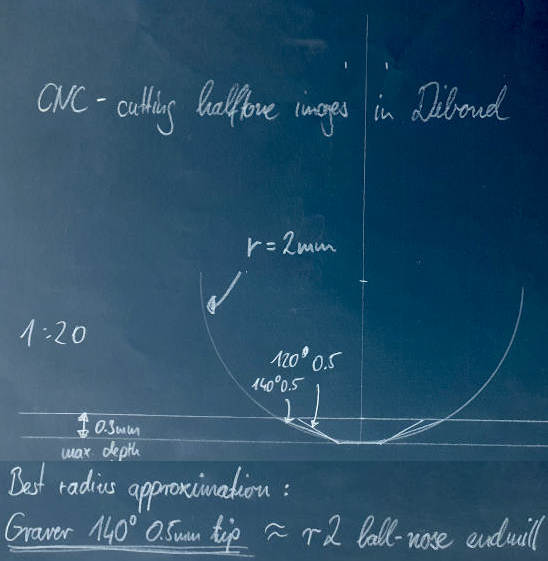 CNC - cutting halftone images in Dibond
r = 2mm
1:20
120° 0.5
140° 0.5
0.3mm
max. depth
Best radius approximation :
Graver 140° 0.5mm tip ≈ r2 ball-nose endmill